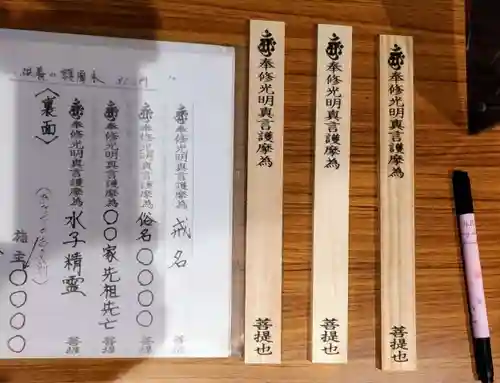 奉修光明真言護摩為 菩提也
奉修光明真言護摩為 菩提也
奉修光明真言護摩為 菩提也
奉修光明真言護摩為 戒名 菩提
奉修光明真言護摩為 俗名〇〇〇〇 菩提
奉修光明真言護摩為 〇〇家先祖先亡 菩提
奉修光明真言護摩為 水子精霊 菩提
〈裏面〉
施主〇〇〇〇